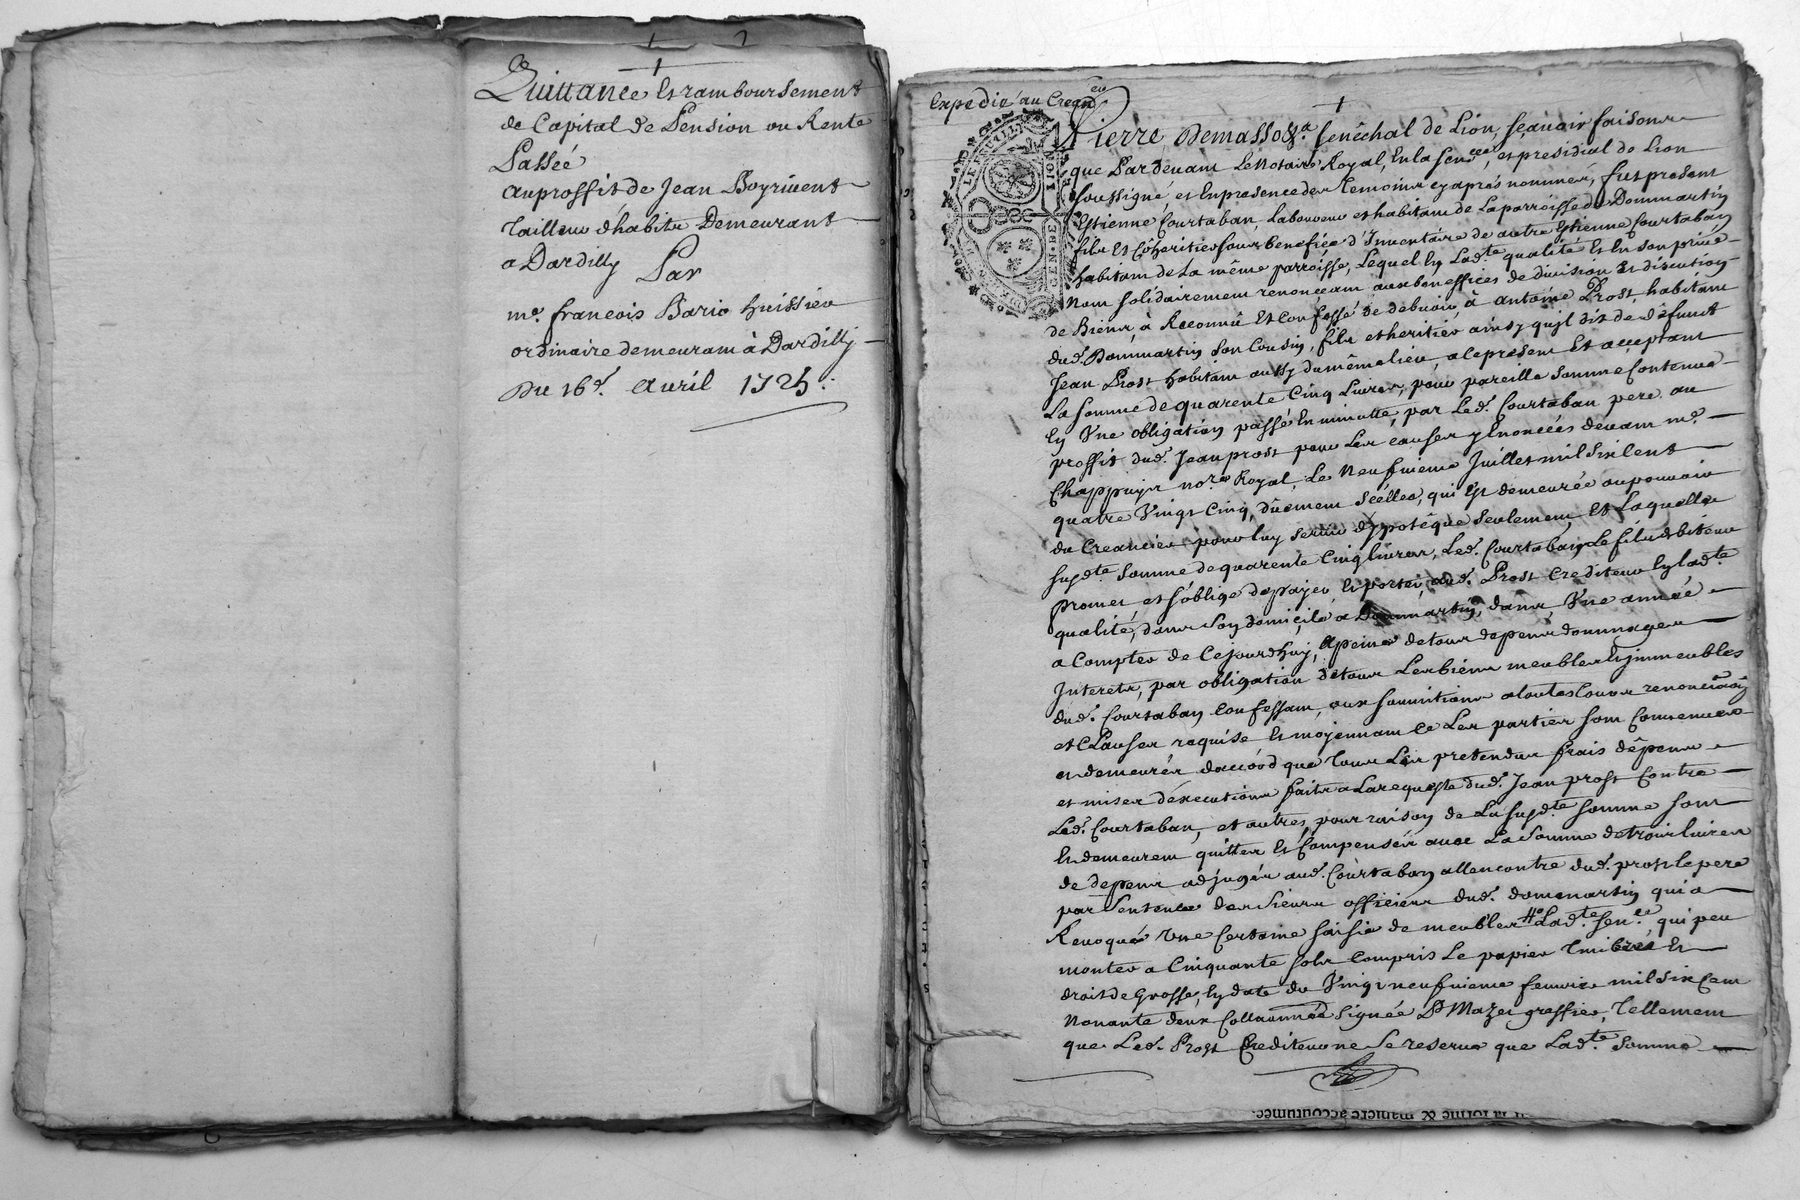 Quittance Et ramboursement
de Capital de Pension ou Rente
Passée
au proffit de Jean Boyrivent
Tailleur d'habits Demeurant
a Dardilly Par
me. françois Bario huissier
ordinaire demeurant à Dardilly
Du 16e. avril 1725.
Expedié au Crean.er
Pierre Demasso &.a senêchal de Lion, sçavoir faisons
que Pardevant Le Notaire Royal, En la sen.cée, et presidial de Lion
soussigné, et En presence des Temoins cy aprés nommés, fut present
Estienne Courtaban, Laboureur et habitant de La parroisse de Dommartin
fils Et Cohéritier sous benefice d'Inventaire de autre Estienne Courtaban
habitant de La même parroisse, Lequel En Lad.te qualité Et En son privé
Nom solidairement renonceant aux beneffices de division Et discution
de Biens, à Reconnû Et Confessé de debvoir, à antoine Prost habitant
dud. Dommartin son Cousin, fils et heritier ainsy qu'jl dit de défunct
Jean Prost habitant aussy du même lieu, a Ce present Et acceptant
La somme de quarente Cinq Livres, pour pareille somme Contenue
En Vne obligation passé En minutte, par Led. Courtaban pere au
proffit dud. Jean prost pour Les causes y Enoncées devant me.
Chappuys no.re Royal, Le Neufvieme Juillet mil six Cent
quatre Vingt Cinq, düement scéllée, qui Est demeurée au pouvoir
du Creancier pour luy servir d'ypotêque seulement, Et Laquelle
susd.te somme de quarente Cinq livres, Led. Courtaban Le fils debiteur
promet, et s'oblige de payer Et porter, aud. Prost Crediteur En lad.te
qualité, dans son domiçile a Dommartin, dans, Vne année
a Compter de Cejourdhuy, a peine de tous depens dommages
Interets, par obligation de tous Les biens meubles Et jmmeubles
dud. Courtaban Confessant, aux soumitions a toutes Cours renonciãõn
et Clauses requise Et moyennant Ce Les parties sont Convenües
et demeurées daccord que Tous Les pretendus frais dépens
et mises d'éxecutions faits a La requeste dud. Jean prost Contre
Led. Courtaban, et autres, pour raison de La susd.te somme sont
Et demeurent quittes Et Compensés avec La somme de trois livres
de depens adjugés aud. Courtaban allencontre dud. prost le pere
par sentence des sieurs officiers dud. dommartin qui a
Revoqué Vne Certaine saisie de meubles # Lad.te sen.ce, qui peu
monter a Cinquante sols Compris Le papier Timbré Et
droit de Grosse, En date du Vingt neufvieme fevrier mil six Cent
Nonante deux Collaõnnée signée D Mazet greffier, Tellement
que Led. Prost Crediteur ne se reserve que Lad.te somme
GEN. DE LION
la forme & maniere accoutumée.